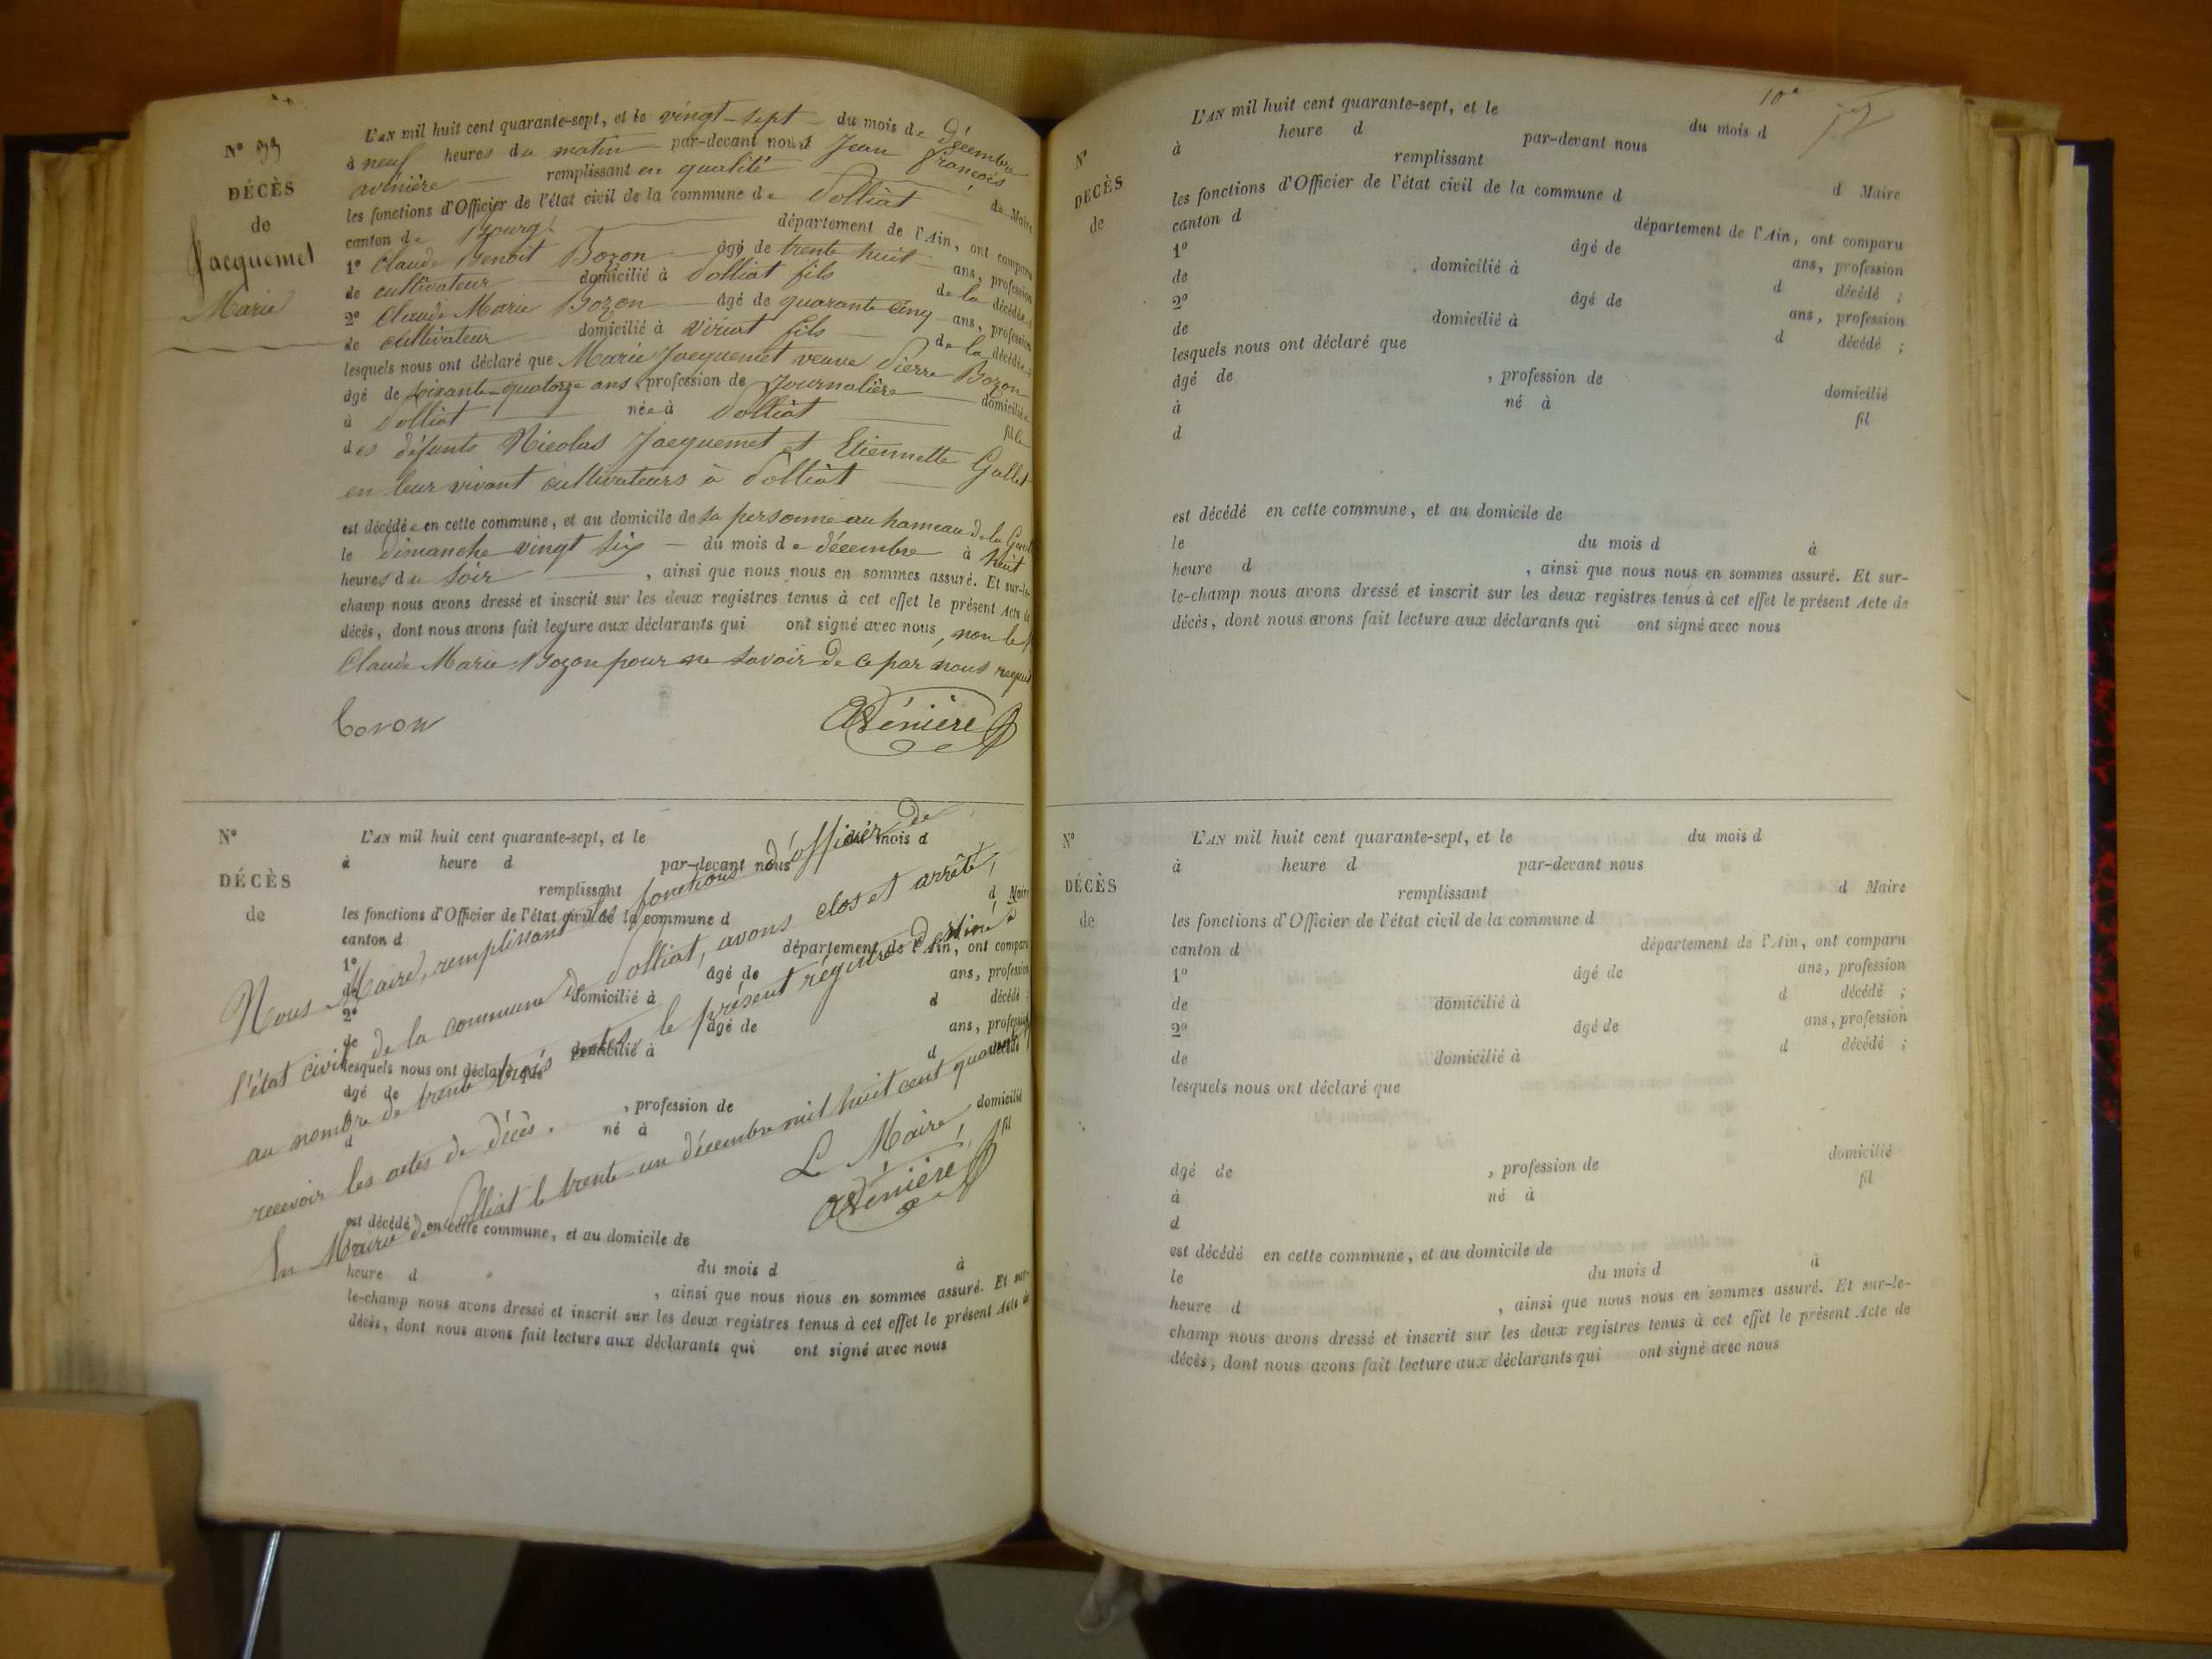 N° 33
DÉCÈS
de
Jacquemet
Marie
L'AN mil huit cent quarante-sept, et le vingt-sept du mois de Décembre
à neuf heures du matin par-devant nous Jean François
avenière remplissant en qualité de Maire
les fonctions d'Officier de l'état civil de la commune de Polliat
canton de Bourg département de l'Ain, ont comparu
1° Claude Benoit Bozon âgé de trente huit ans, profession
de cultivateur domicilié à Polliat fils de la décédée ;
2° Claude Marie Bozon âgé de quarante cinq ans, profession
de cultivateur domicilié à Viriat fils de la décédée ;
lesquels nous ont déclaré que Marie Jacquemet veuve Pierre Bozon
âgé de soixante-quatorze ans, profession de Journalière domiciliée
à Polliat née à Polliat fille
des défunts Nicolas Jacquemet et Etiennette Gallet
en leur vivant cultivateurs à Polliat
est décédée en cette commune, et au domicile de sa personne au hameau de la
le Dimanche vingt six du mois de décembre à huit
heures du soir , ainsi que nous nous en sommes assuré. Et sur-le-
champ nous avons dressé et inscrit sur les deux registres tenus à cet effet le présent Acte de
décès, dont nous avons fait lecture aux déclarants qui ont signé avec nous, non le
Claude Marie Bozon pour ne savoir de ce par nous requis
Boson
Avenière
N°
DÉCÈS
de
L'AN mil huit cent quarante-sept, et le du mois d
à heure d par-devant nous
remplissant d Maire
les fonctions d'Officier de l'état civil de la commune d
canton d département de l'Ain, ont comparu
1° âgé de ans, profession
de domicilié à d décédé ;
2° âgé de ans, profession
de domicilié à d décédé ;
lesquels nous ont déclaré que
âgé de , profession de domicilié
à né à fil
d
Nous Maire, remplissant les fonctions d'officier de
l'état civil de la commune de Polliat, avons clos et arrêté,
au nombre de trente trois actes, le présent régistre destiné à
recevoir les actes de décès.
En Mairie de Polliat le trente-un décembre mil huit cent quarante
Le Maire,
Avenière
est décédé en cette commune, et au domicile de
du mois d à
heure d , ainsi que nous nous en sommes assuré. Et sur-
le-champ nous avons dressé et inscrit sur les deux registres tenus à cet effet le présent Acte de
décès, dont nous avons fait lecture aux déclarants qui ont signé avec nous
10e
N°
DÉCÈS
de
L'AN mil huit cent quarante-sept, et le du mois d
à heure d par-devant nous
remplissant d Maire
les fonctions d'Officier de l'état civil de la commune d
canton d département de l'Ain, ont comparu
1° âgé de ans, profession
de domicilié à d décédé ;
2° âgé de ans, profession
de domicilié à d décédé ;
lesquels nous ont déclaré que
âgé de , profession de domicilié
à né à fil
d
est décédé en cette commune, et au domicile de
le du mois d à
heure d , ainsi que nous nous en sommes assuré. Et sur-
le-champ nous avons dressé et inscrit sur les deux registres tenus à cet effet le présent Acte de
décès, dont nous avons fait lecture aux déclarants qui ont signé avec nous
N°
DÉCÈS
de
L'AN mil huit cent quarante-sept, et le du mois d
à heure d par-devant nous
remplissant d Maire
les fonctions d'Officier de l'état civil de la commune d
canton d département de l'Ain, ont comparu
1° âgé de ans, profession
de domicilié à d décédé ;
2° âgé de ans, profession
de domicilié à d décédé ;
lesquels nous ont déclaré que
âgé de , profession de domicilié
à né à fil
d
est décédé en cette commune, et au domicile de
le du mois d à
heure d , ainsi que nous nous en sommes assuré. Et sur-le-
champ nous avons dressé et inscrit sur les deux registres tenus à cet effet le présent Acte de
décès, dont nous avons fait lecture aux déclarants qui ont signé avec nous